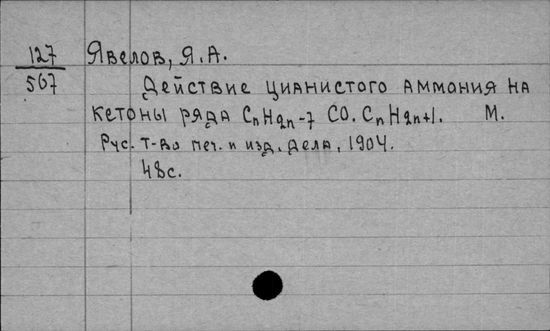 127 Явелов, Я.А.
567 Действие цианистого аммония на
кетоны ряда CnH2n-7 CO.CnH2n+1. М.
Рус. т-во печ. и изд. дела, 1904.
48с.